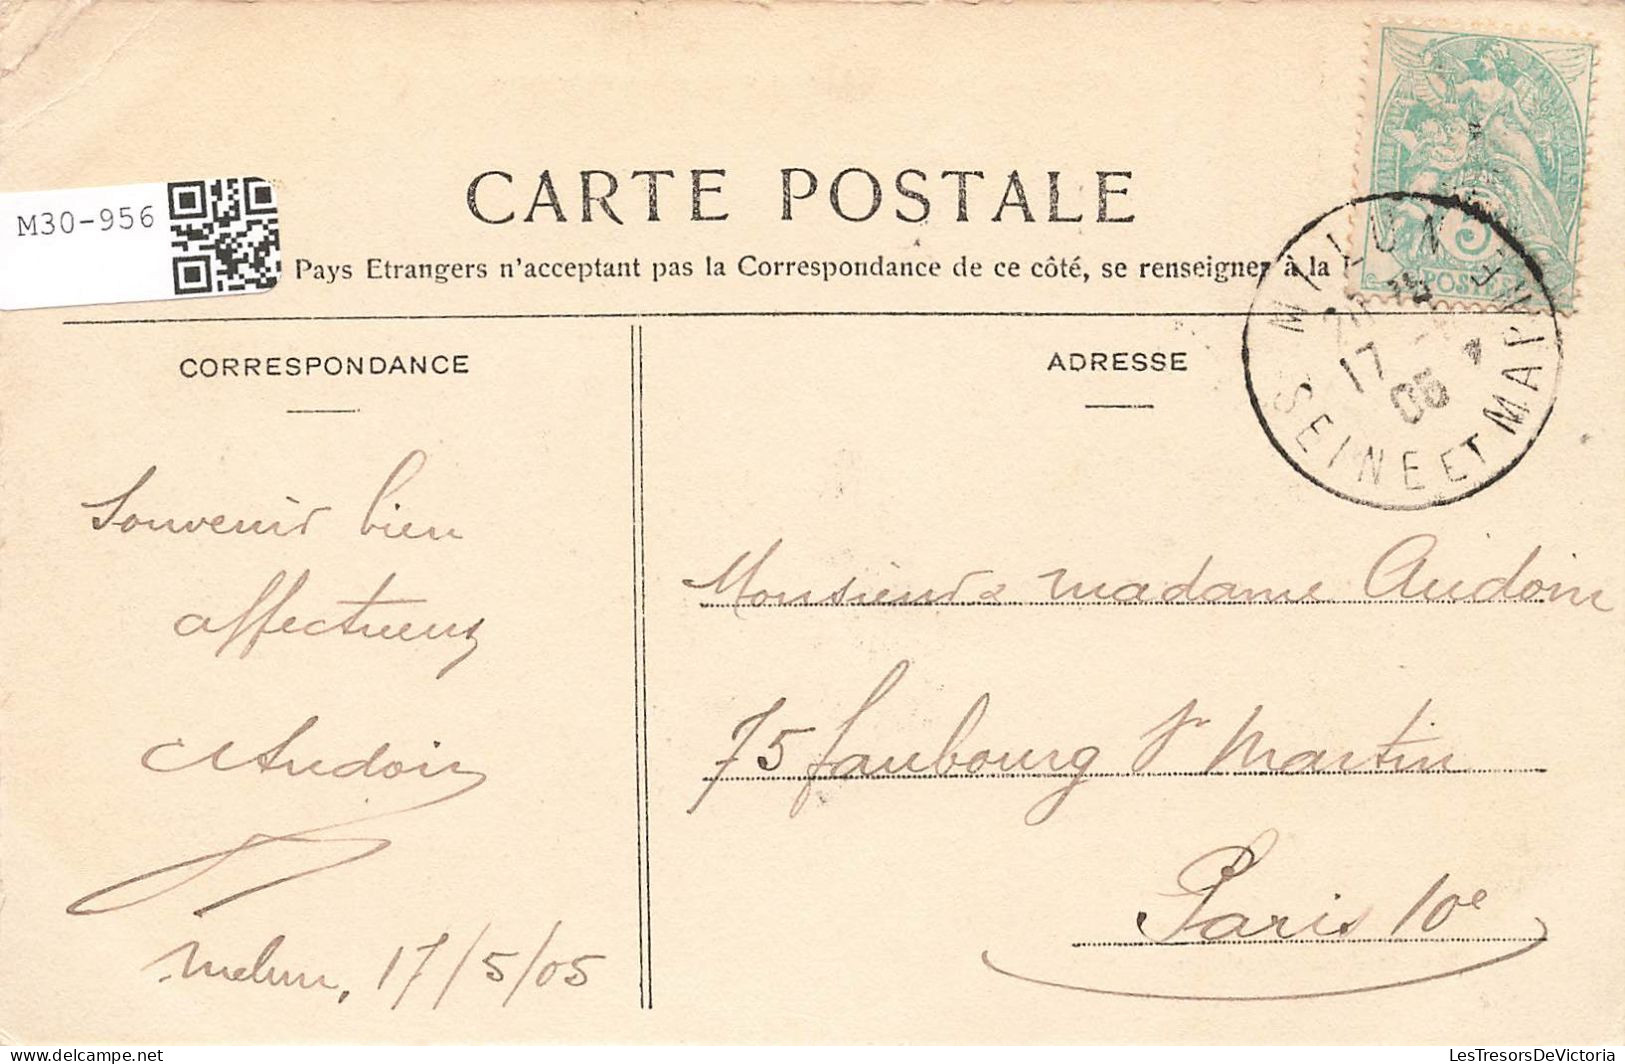 CARTE POSTALE
M30-956
Pays Etrangers n'acceptant pas la Correspondance de ce côté, se renseigner à la
CORRESPONDANCE
ADRESSE
MELUN
17
05
SEINE ET MARNE
5
POSTES
Souvenir bien
affectueux
Audoin
Melun, 17/5/05
Monsieur & madame Audoin
75 faubourg St Martin
Paris 10e
delcampe.net
LesTresorsDeVictoria